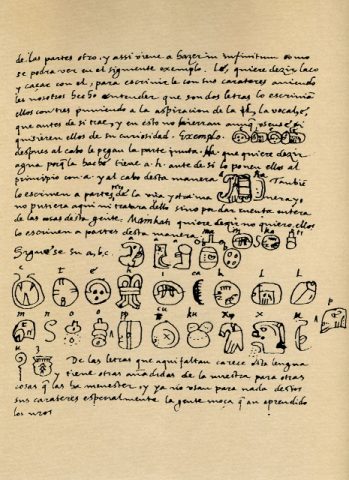 de las partes otro, y assi viene a hazer in infinitum como
se podra ver en el siguiente exemplo. Lé, quiere dezir laço
y caçar con el, para escrivirle con sus carateres aviendo
les nosotros hecho entender que son dos letras lo escrivian
ellos con tres puniendo a la aspiracion de la l, la vocal e,
que antes de si trae, y en esto no hierran aunq usense si
quisieren ellos de su curiosidad. Exemplo.
despues al cabo le pegan la parte junta. Ha que quiere dezir
agua porq la hache tiene a, h, ante de si lo ponen ellos al
principio con a, y al cabo desta manera Tambie
lo escriven a partes de la una y otra manera, yo
no pusiera aqui ni tratara dello sino por dar cuenta entera
de las cosas desta gente. Mamkati quiere dezir no quiero, ellos
lo escriven a partes desta manera.
Siguese su a, b, c
c t é h i ca k l l
m n o o p pp cu ku x x u p
u z
De las letras que aqui faltan carece esta lengua
y tiene otras añadidas de la nuestra para otras
cosas q las ha menester, y ya no usan para nada destos
sus carateres especialmente la gente moça q an aprendido
los nros